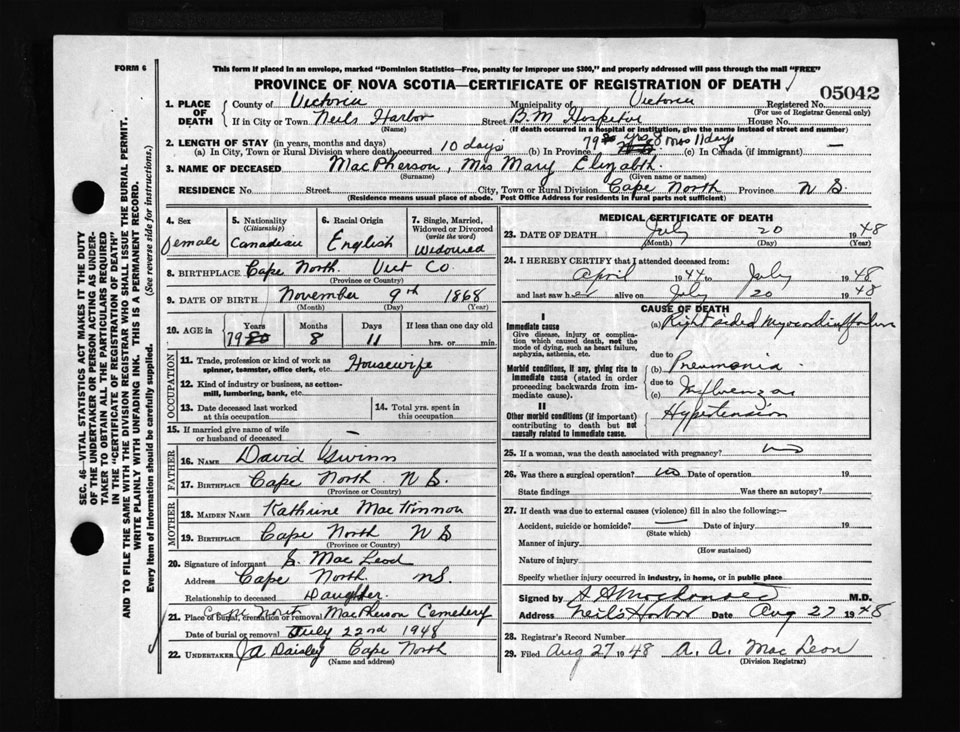 FORM 6
This form if placed in an envelope, marked "Dominion Statistics—Free, penalty for improper use $300," and properly addressed will pass through the mail "FREE"
PROVINCE OF NOVA SCOTIA—CERTIFICATE OF REGISTRATION OF DEATH
05042
1. PLACE OF DEATH County of Victoria Municipality of Victoria Registered No.
(For use of Registrar General only)
If in City or Town Neils Harbor Street B.M Hospital House No.
(Name) (If death occurred in a hospital or institution, give the name instead of street and number)
2. LENGTH OF STAY (in years, months and days) 79 yrs 8 mos 11 days
(a) In City, Town or Rural Division where death occurred 10 days (b) In Province (c) In Canada (if immigrant) —
3. NAME OF DECEASED MacPherson, Mrs Mary Elizabth
(Surname) (Given name or names)
RESIDENCE No. Street City, Town or Rural Division Cape North Province N S.
(Residence means usual place of abode. Post Office Address for residents in rural parts not sufficient)
4. Sex female
5. Nationality (Citizenship) Canadian
6. Racial Origin English
7. Single, Married, Widowed or Divorced (write the word) Widowed
8. BIRTHPLACE Cape North. Vict Co.
(Province or Country)
9. DATE OF BIRTH November 9th 1868
(Month) (Day) (Year)
10. AGE in Years Months Days If less than one day old
79 8 11 hrs. or min.
OCCUPATION
11. Trade, profession or kind of work as spinner, teamster, office clerk, etc. Housewife
12. Kind of industry or business, as cotton-mill, lumbering, bank, etc.
13. Date deceased last worked at this occupation
14. Total yrs. spent in this occupation
15. If married give name of wife or husband of deceased —
FATHER
16. NAME David Gwinn
17. BIRTHPLACE Cape North. N S.
(Province or Country)
MOTHER
18. MAIDEN NAME Kathrine MacKinnon
19. BIRTHPLACE Cape North N S
(Province or Country)
20. Signature of informant S. MacLeod
Address Cape North. NS.
Relationship to deceased Daughter.
21. Place of burial, cremation or removal Cape North MacPherson Cemetery
Date of burial or removal July 22nd 1948
22. UNDERTAKER J A Daisley Cape North
(Name and address)
MEDICAL CERTIFICATE OF DEATH
23. DATE OF DEATH July 20 1948
(Month) (Day) (Year)
24. I HEREBY CERTIFY that I attended deceased from:
April 1944 to July 1948
and last saw her alive on July 20 1948
CAUSE OF DEATH
I
Immediate cause
Give disease, injury or complication which caused death, not the mode of dying, such as heart failure, asphyxia, asthenia, etc.
(a) Right sided Myocardial failure
due to
Morbid conditions, if any, giving rise to immediate cause (stated in order proceeding backwards from immediate cause).
(b) Pneumonia
due to
(c) Influenza
II
Other morbid conditions (if important) contributing to death but not causally related to immediate cause.
Hypertension
25. If a woman, was the death associated with pregnancy? no
26. Was there a surgical operation? no Date of operation 19
State findings Was there an autopsy?
27. If death was due to external causes (violence) fill in also the following:—
Accident, suicide or homicide? — Date of injury 19
(State which)
Manner of injury
(How sustained)
Nature of injury
Specify whether injury occurred in industry, in home, or in public place
Signed by M.D.
Address Neil's Harbor Date Aug 27 1948
28. Registrar's Record Number
29. Filed Aug 27 1948 A. A. MacLeon
(Division Registrar)
SEC. 46—VITAL STATISTICS ACT MAKES IT THE DUTY
OF THE UNDERTAKER OR PERSON ACTING AS UNDER-
TAKER TO OBTAIN ALL THE PARTICULARS REQUIRED
IN THE "CERTIFICATE OF REGISTRATION OF DEATH"
AND TO FILE THE SAME WITH THE DIVISION REGISTRAR WHO SHALL ISSUE THE BURIAL PERMIT.
WRITE PLAINLY WITH UNFADING INK. THIS IS A PERMANENT RECORD.
Every item of information should be carefully supplied. (See reverse side for instructions.)